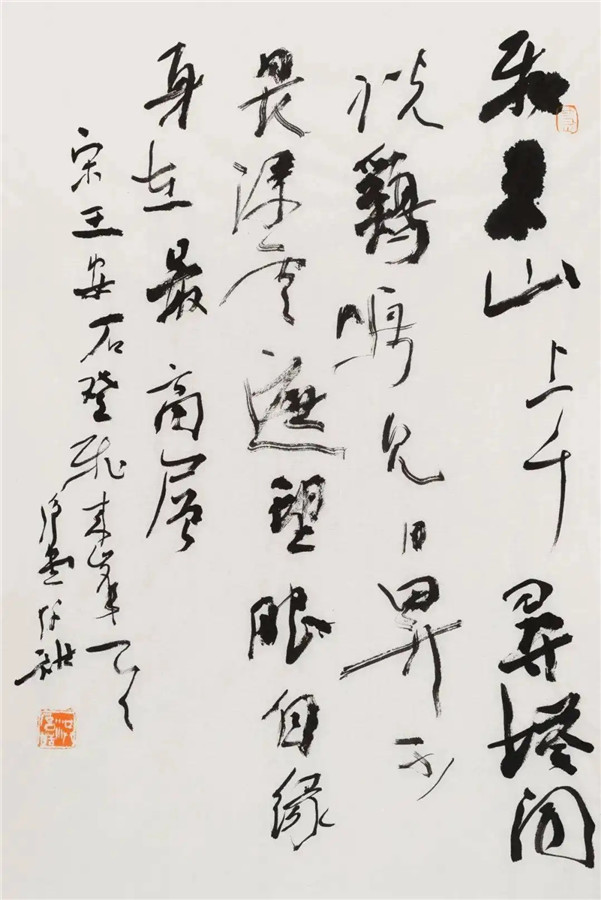 飛山上千尋塔聞
説鷄鳴見日昇不
畏浮雲遮望眼自緣
身在最高層
宋王安石登飛来峰乙